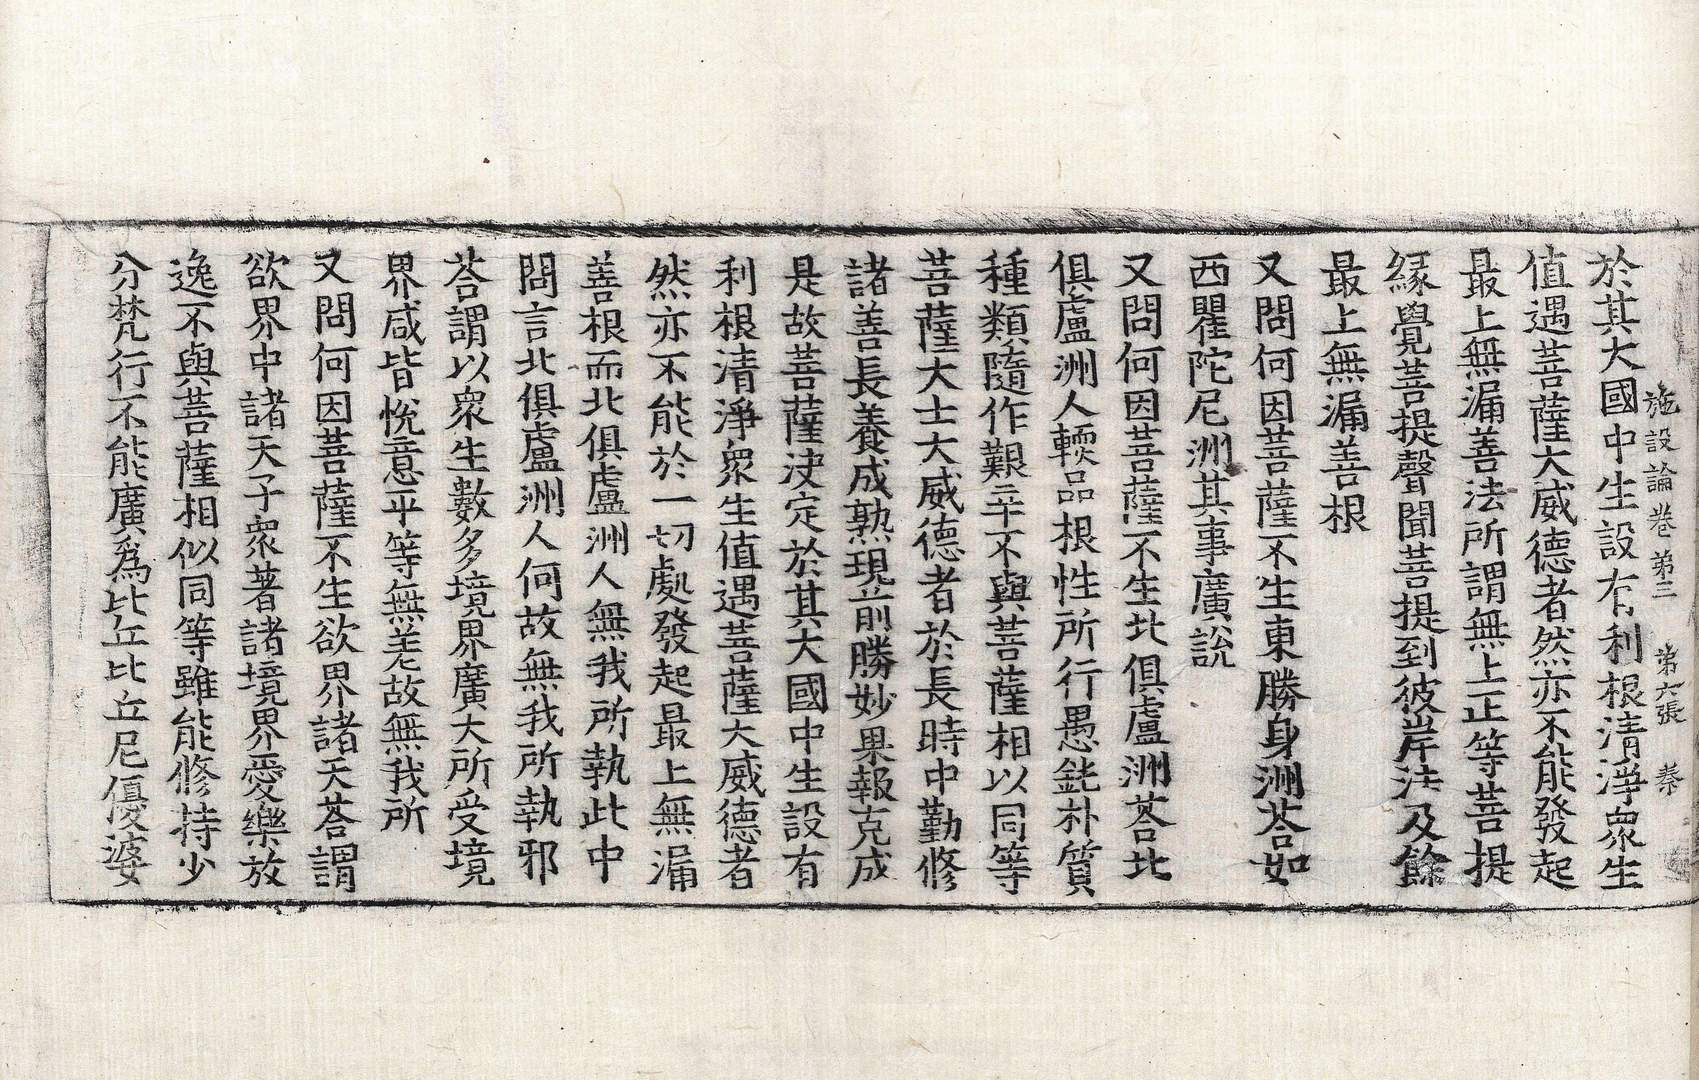 施設論卷第三　第六張　㭍
於其大國中生設有利根清淨衆生
值遇菩薩大威德者然亦不能發起
最上無漏善法所謂無上正等菩提
緣覺菩提聲聞菩提到彼岸法及餘
最上無漏善根
又問何因菩薩不生東勝身洲荅如
西瞿陀尼洲其事廣說
又問何因菩薩不生北俱盧洲荅北
俱盧洲人輭品根性所行愚鈍朴質
種類隨作艱辛不與菩薩相似同等
菩薩大士大威德者於長時中勤修
諸善長養成熟現前勝妙果報克成
是故菩薩決定於其大國中生設有
利根清淨衆生值遇菩薩大威德者
然亦不能於一切處發起最上無漏
善根而北俱盧洲人無我所執此中
問言北俱盧洲人何故無我所執邪
荅謂以衆生數多境界廣大所受境
界咸皆悅意平等無差故無我所
又問何因菩薩不生欲界諸天荅謂
欲界中諸天子衆著諸境界愛樂放
逸不與菩薩相似同等雖能修持少
分梵行不能廣爲比丘比丘尼優婆